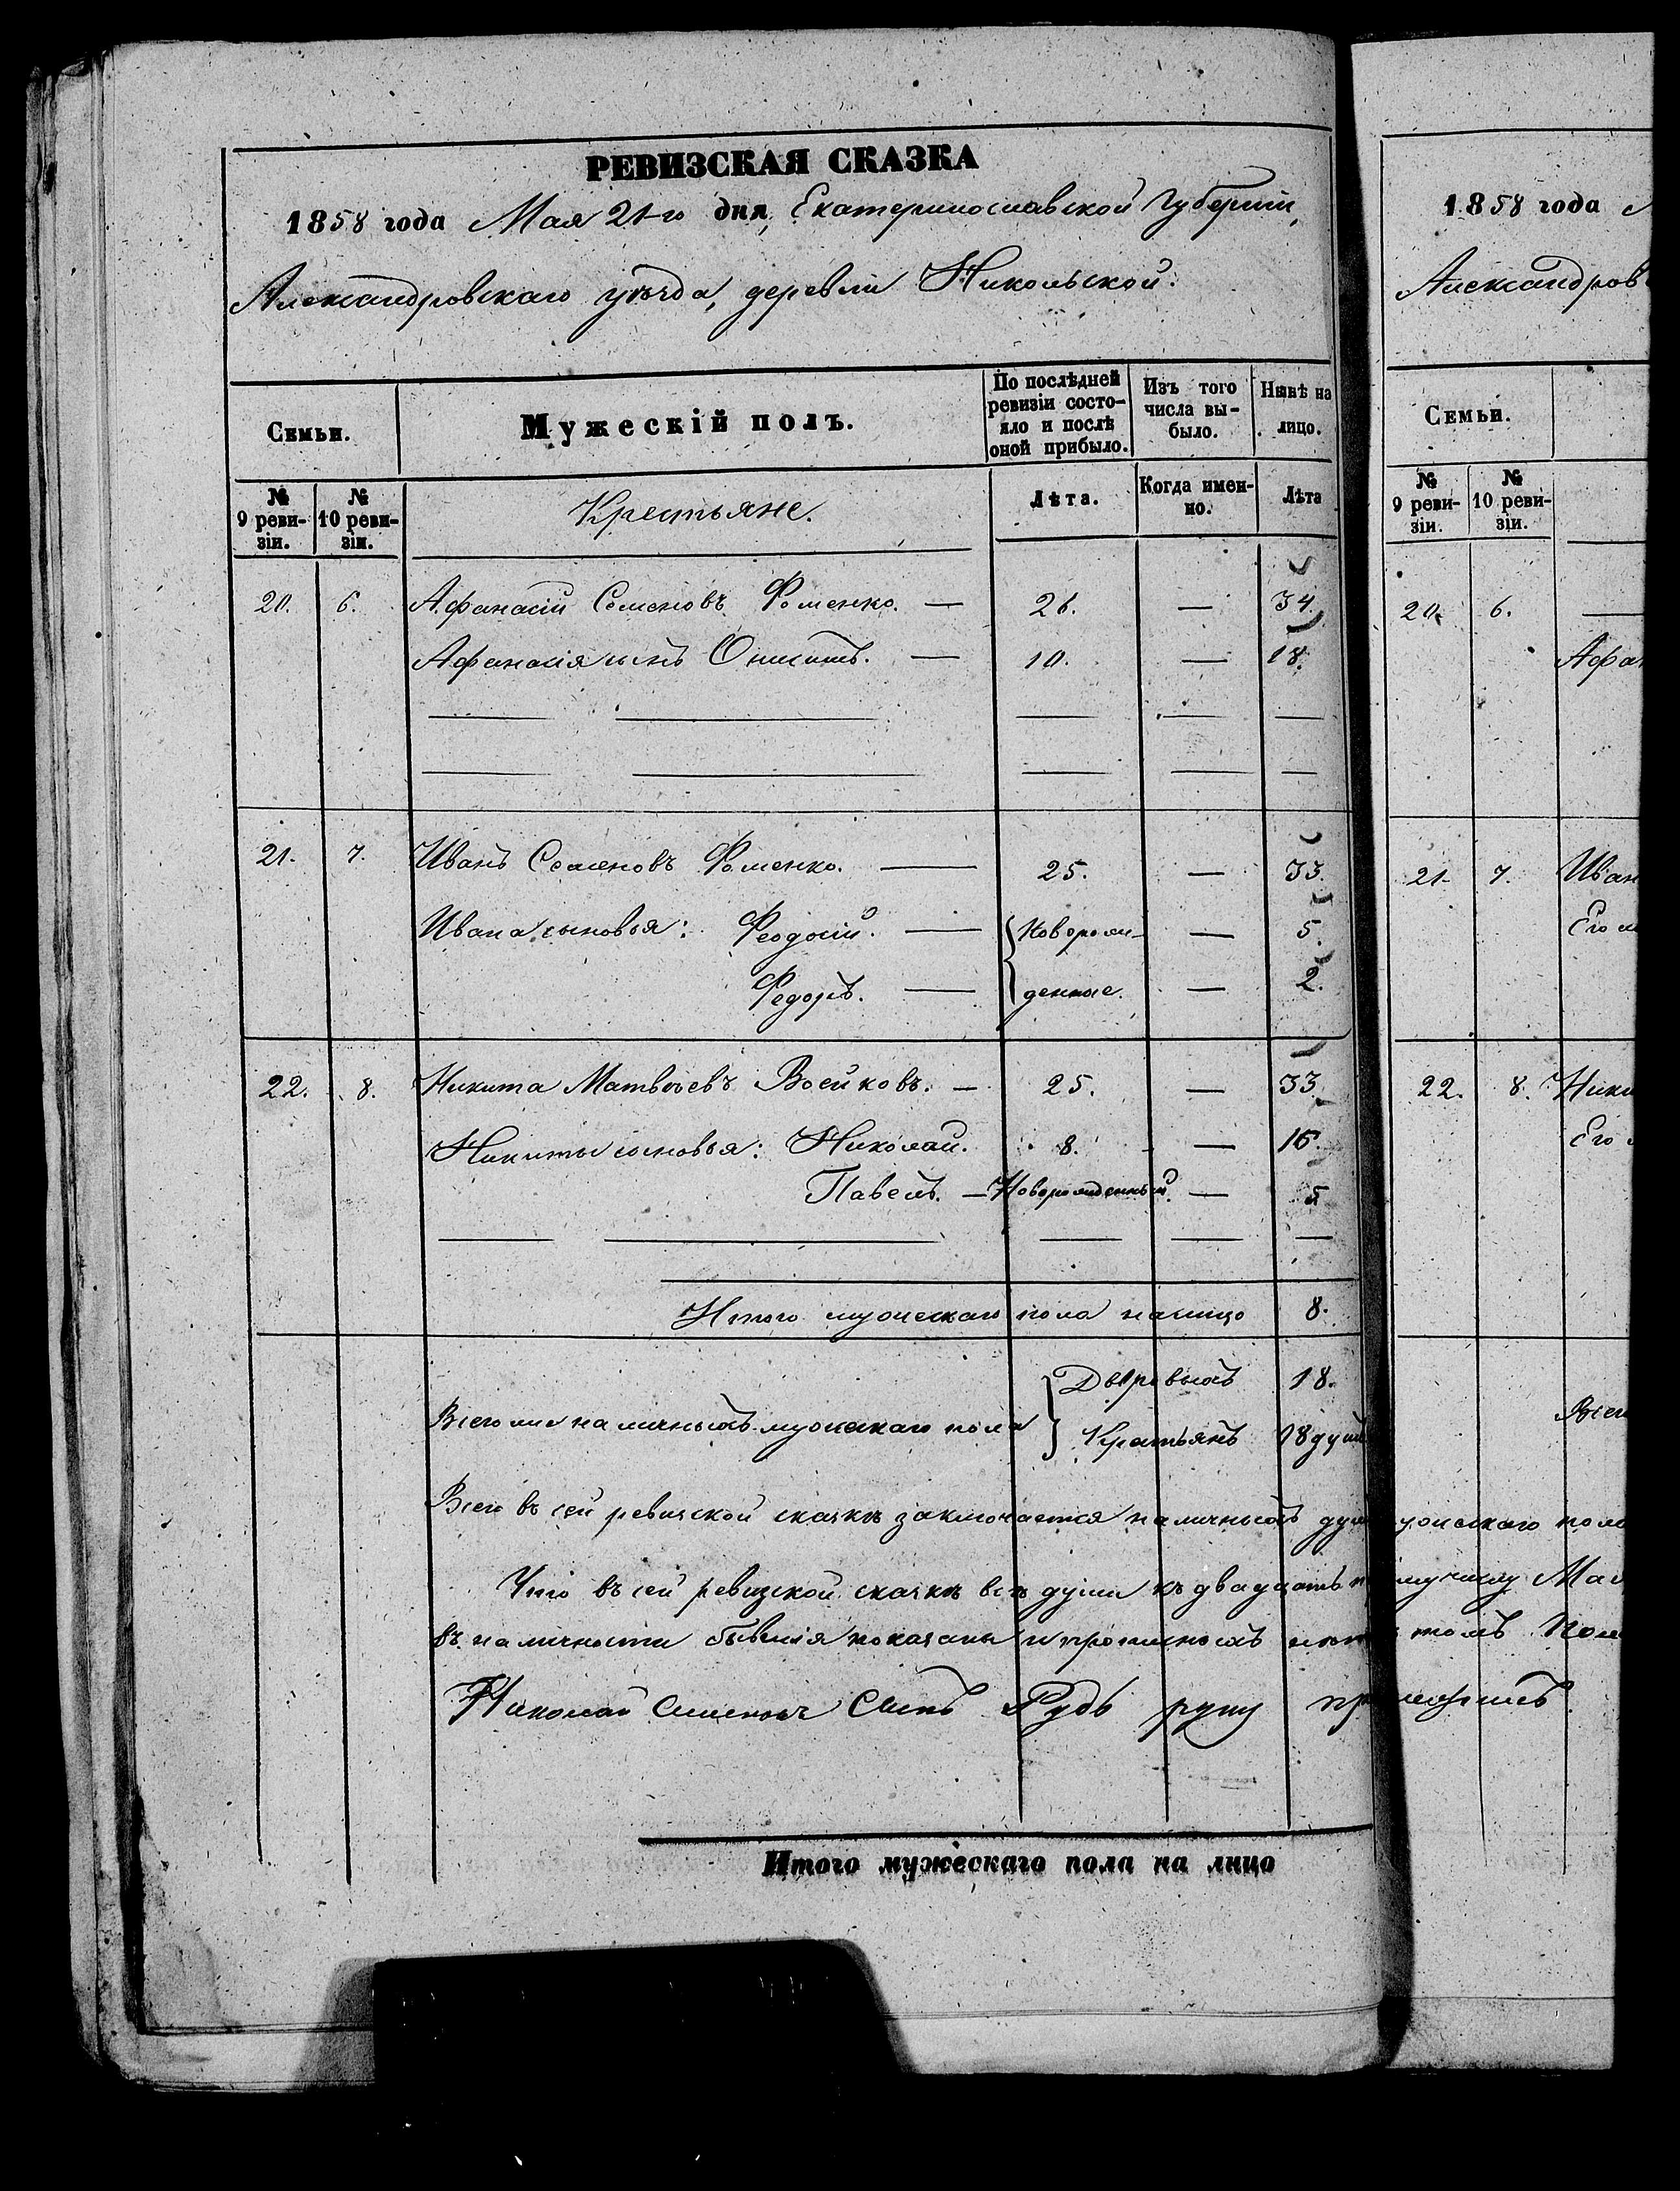 РЕВИЗСКАЯ СКАЗКА
1858 года Мая 21-го дня, Екатеринославской Губерніи,
Александровскаго уѣзда, деревни Никольской.
Семьи. Мужескій полъ. По послѣдней ревизіи состояло и послѣ оной прибыло. Изъ того числа выбыло. Нынѣ на лицо.
№ 9 ревизіи. № 10 ревизіи. Крестьяне. Лѣта. Когда именно. Лѣта
20. 6. Афанасій Семеновъ Фоменко. — 26. — 34.
Афанасія сынъ — 10. — 18.
21. 7. Иванъ Семеновъ Фоменко. — 25. — 33.
Ивана сыновья: Феодосій. — Новорож- — 5.
Федоръ. — денные. — 2.
22. 8. Никита Матвѣевъ Воейковъ. — 25. — 33.
Никиты сыновья: Николай. 8. — 16.
Павелъ. — Новорожденный. — 5
Итого мужескаго пола налицо 8.
Дворовыхъ 18.
Всего же наличныхъ мужескаго пола
Крестьянъ 18 душъ
Всего въ сей ревизской сказкѣ заключается наличныхъ душ
Что въ сей ревизской сказкѣ всѣ души къ двадцать
въ наличности бывшія показаны и прописныхъ
Николай сынъ Рудь руку
Итого мужескаго пола на лицо
1858 года
Александров
Семьи.
№ 9 ревизіи. № 10 ревизіи.
20. 6. —
Афан
21. 7. Иван
Его
22. 8. Ники
Его
Всег
пола